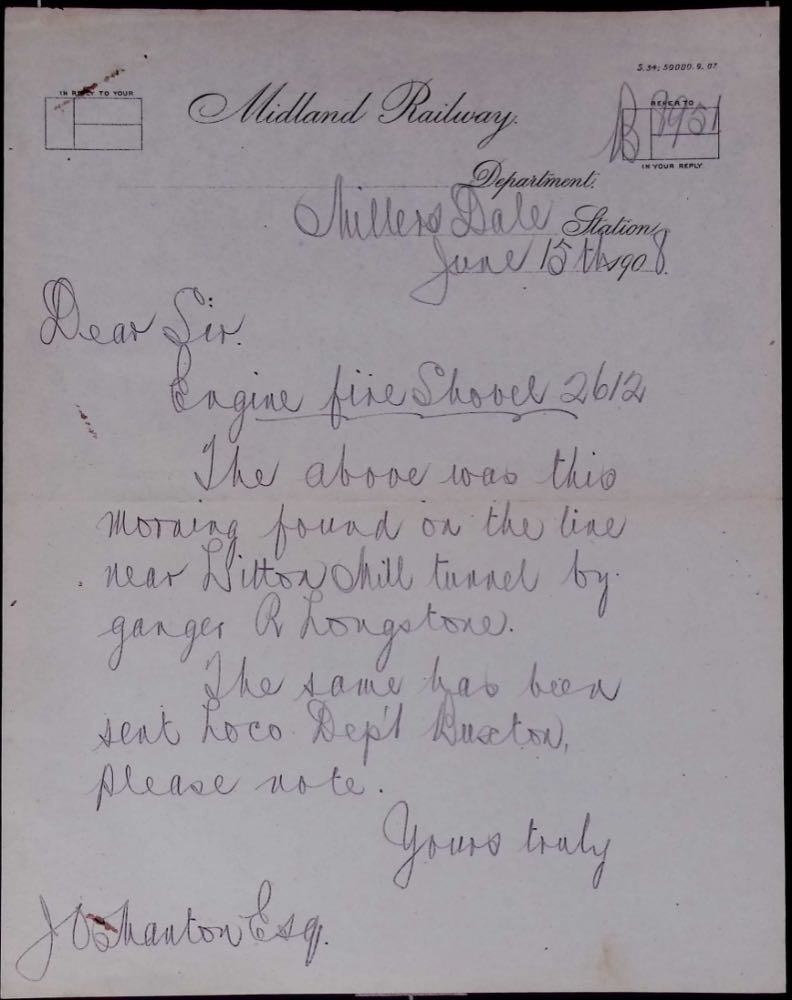 S.34; 50000. 9. 07
IN REPLY TO YOUR
Midland Railway.
REFER TO
B 8951
IN YOUR REPLY
Department.
Millers Dale Station,
June 15th 1908.
Dear Sir.
Engine fire Shovel 2612
The above was this
morning found on the line
near Litton Mill tunnel by
ganger R Longstone.
The same has been
sent Loco Dep't Buxton,
please note.
Yours truly
J Manton Esq.